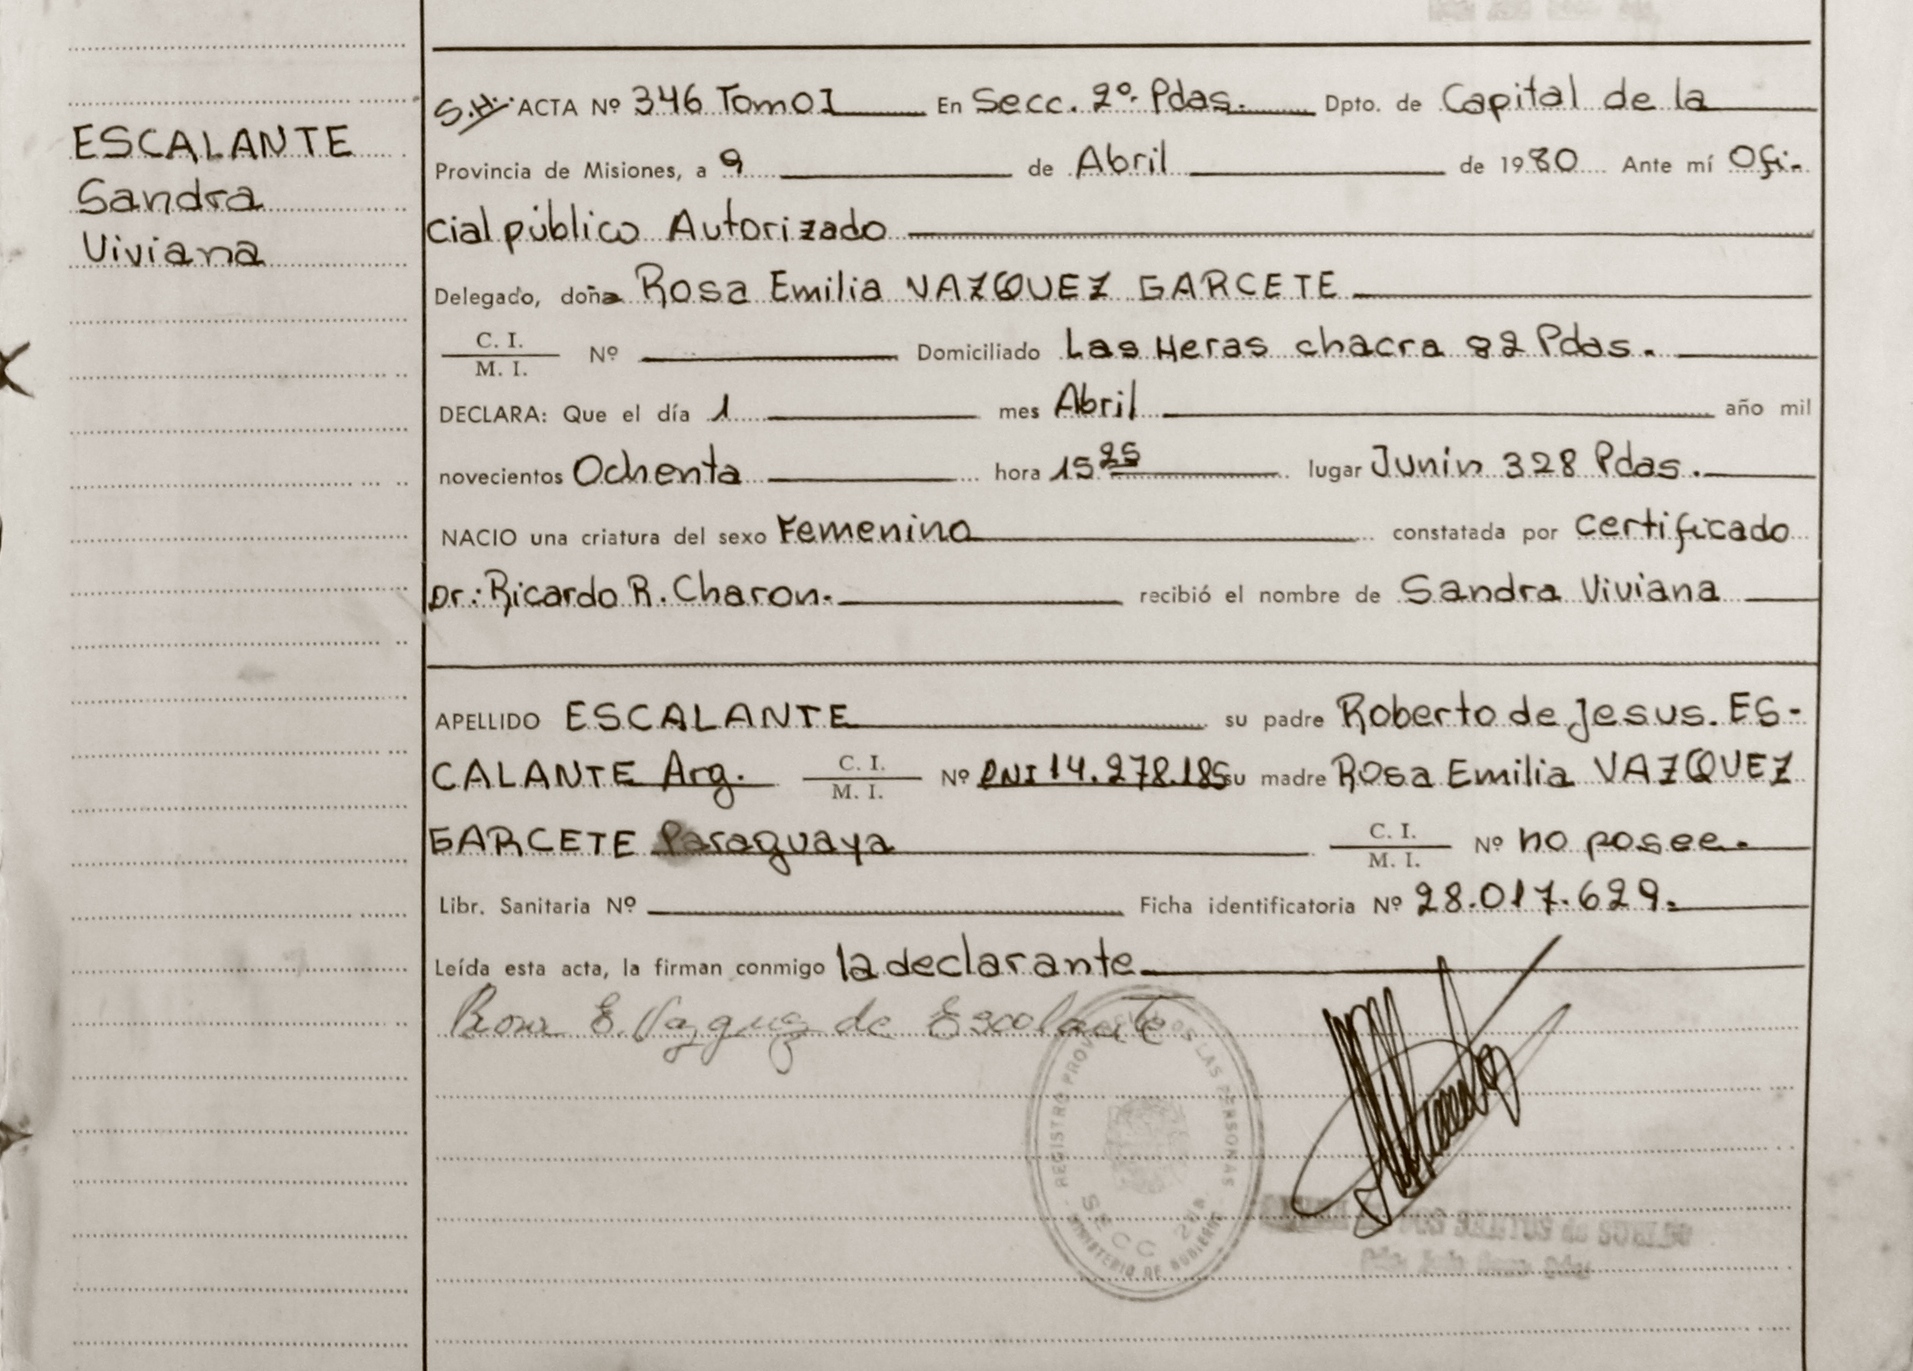 ESCALANTE
Sandra
Viviana
S.H. ACTA Nº 346 Tomo I En Secc. 2º Pdas. Dpto. de Capital de la
Provincia de Misiones, a 9 de Abril de 1980 Ante mí Ofi-
cial público Autorizado
Delegado, doña Rosa Emilia VAZQUEZ GARCETE
C. I.
M. I. Nº Domiciliado Las Heras chacra 82 Pdas.
DECLARA: Que el día 1 mes Abril año mil
novecientos Ochenta hora 15 25 lugar Junin 328 Pdas.
NACIO una criatura del sexo Femenino constatada por certificado
Dr.: Ricardo R. Charon. recibió el nombre de Sandra Viviana
APELLIDO ESCALANTE su padre Roberto de Jesus. ES-
CALANTE Arg. C. I. M. I. Nº DNI 14.278.185 su madre Rosa Emilia VAZQUEZ
GARCETE Paraguaya C. I. M. I. Nº no posee.
Libr. Sanitaria Nº Ficha identificatoria Nº 28.017.629.
Leída esta acta, la firman conmigo la declarante
Rosa E. Vazquez de Escalante
REGISTRO PROVINCIAL DE LAS PERSONAS
SECC 2da
MINISTERIO DE GOBIERNO